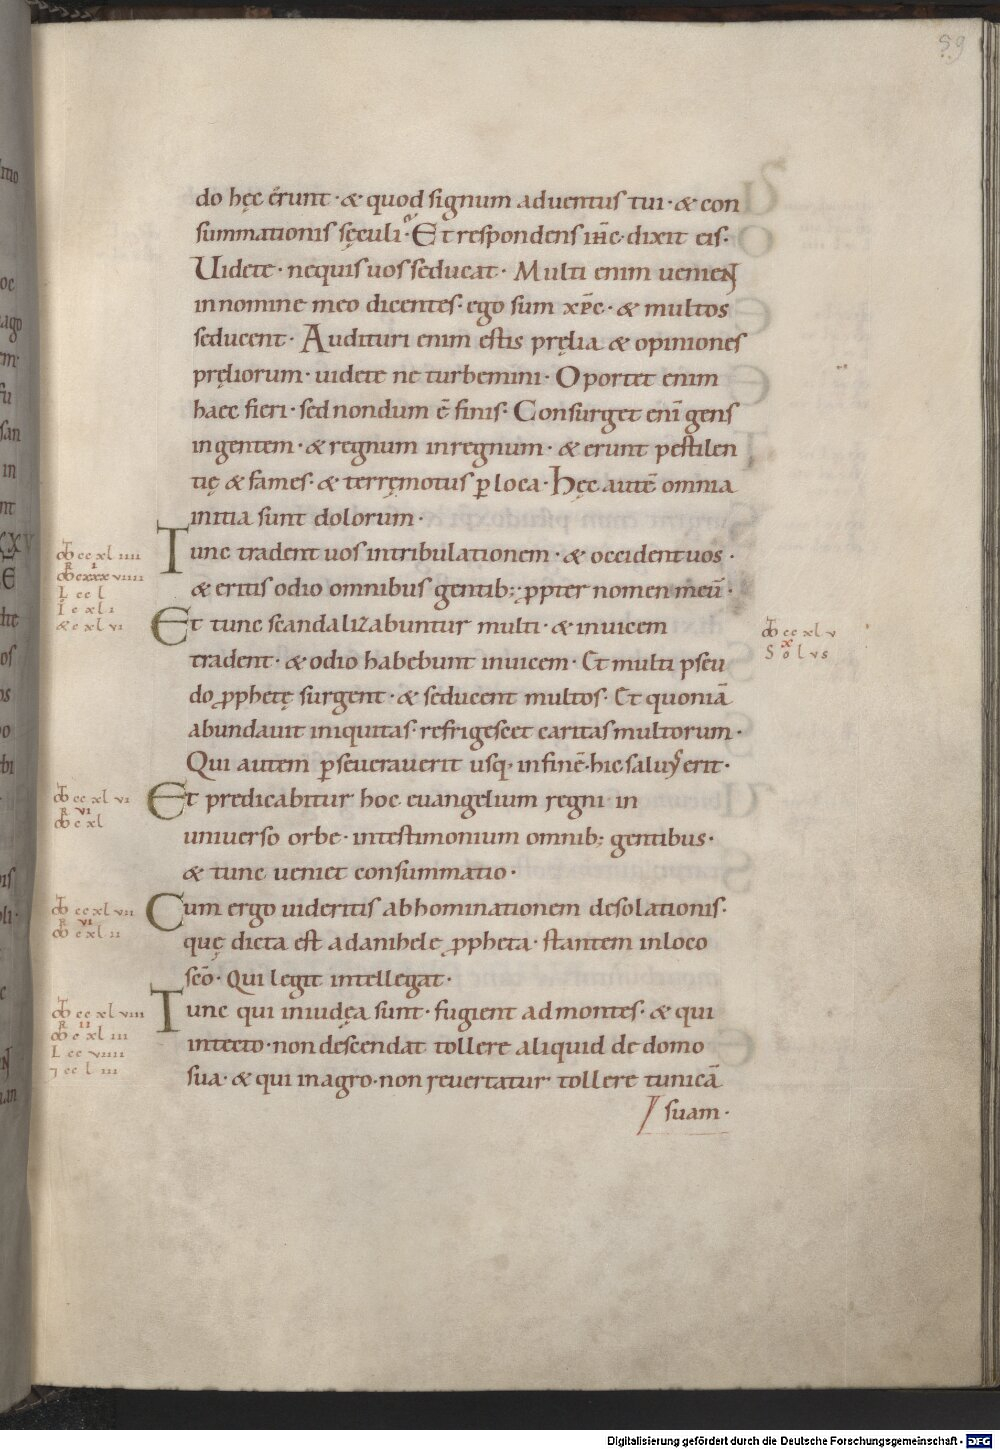 59
do hęc erunt · & quod signum aduentus tui · & con
summationis sęculi · Et respondens ih̅c · dixit eis ·
Uidete · nequis uos seducat · Multi enim uenient
innomine meo dicentes · ego sum xp̅c · & multos
seducent · Audituri enim estis pręlia & opiniones
pręliorum · uidete ne turbemini · Oportet enim
haec fieri · sed nondum e̅ finis · Consurget eni̅ gens
ingentem · & regnum inregnum · & erunt pestilen
tię & fames · & terręmotus ꝑ loca · Hęc aute̅ omnia
initia sunt dolorum ·
Tunc tradent uos intribulationem · & occident uos ·
& eritis odio omnibus gentib; ꝓpter nomen meu̅ ·
Et tunc scandalizabuntur multi · & inuicem
tradent · & odio habebunt inuicem · Et multi pseu
do ꝓphetę surgent · & seducent multos · Et quonia̅
abundauit iniquitas · refrigescet caritas multorum ·
Qui autem ꝑseuerauerit usq· infine̅ · hic saluus erit ·
Et predicabitur hoc euangelium regni in
uniuerso orbe · intestimonium omnib; gentibus ·
& tunc ueniet consummatio ·
Cum ergo uideritis abhominationem desolationis ·
quę dicta est adanihele ꝓpheta · stantem inloco
sc̅o · Qui legit intellegat ·
Tunc qui iniudęa sunt · fugient admontes · & qui
intecto · non descendat tollere aliquid de domo
sua · & qui inagro · non reuertatur tollere tunica̅
suam ·
Digitalisierung gefördert durch die Deutsche Forschungsgemeinschaft - DFG